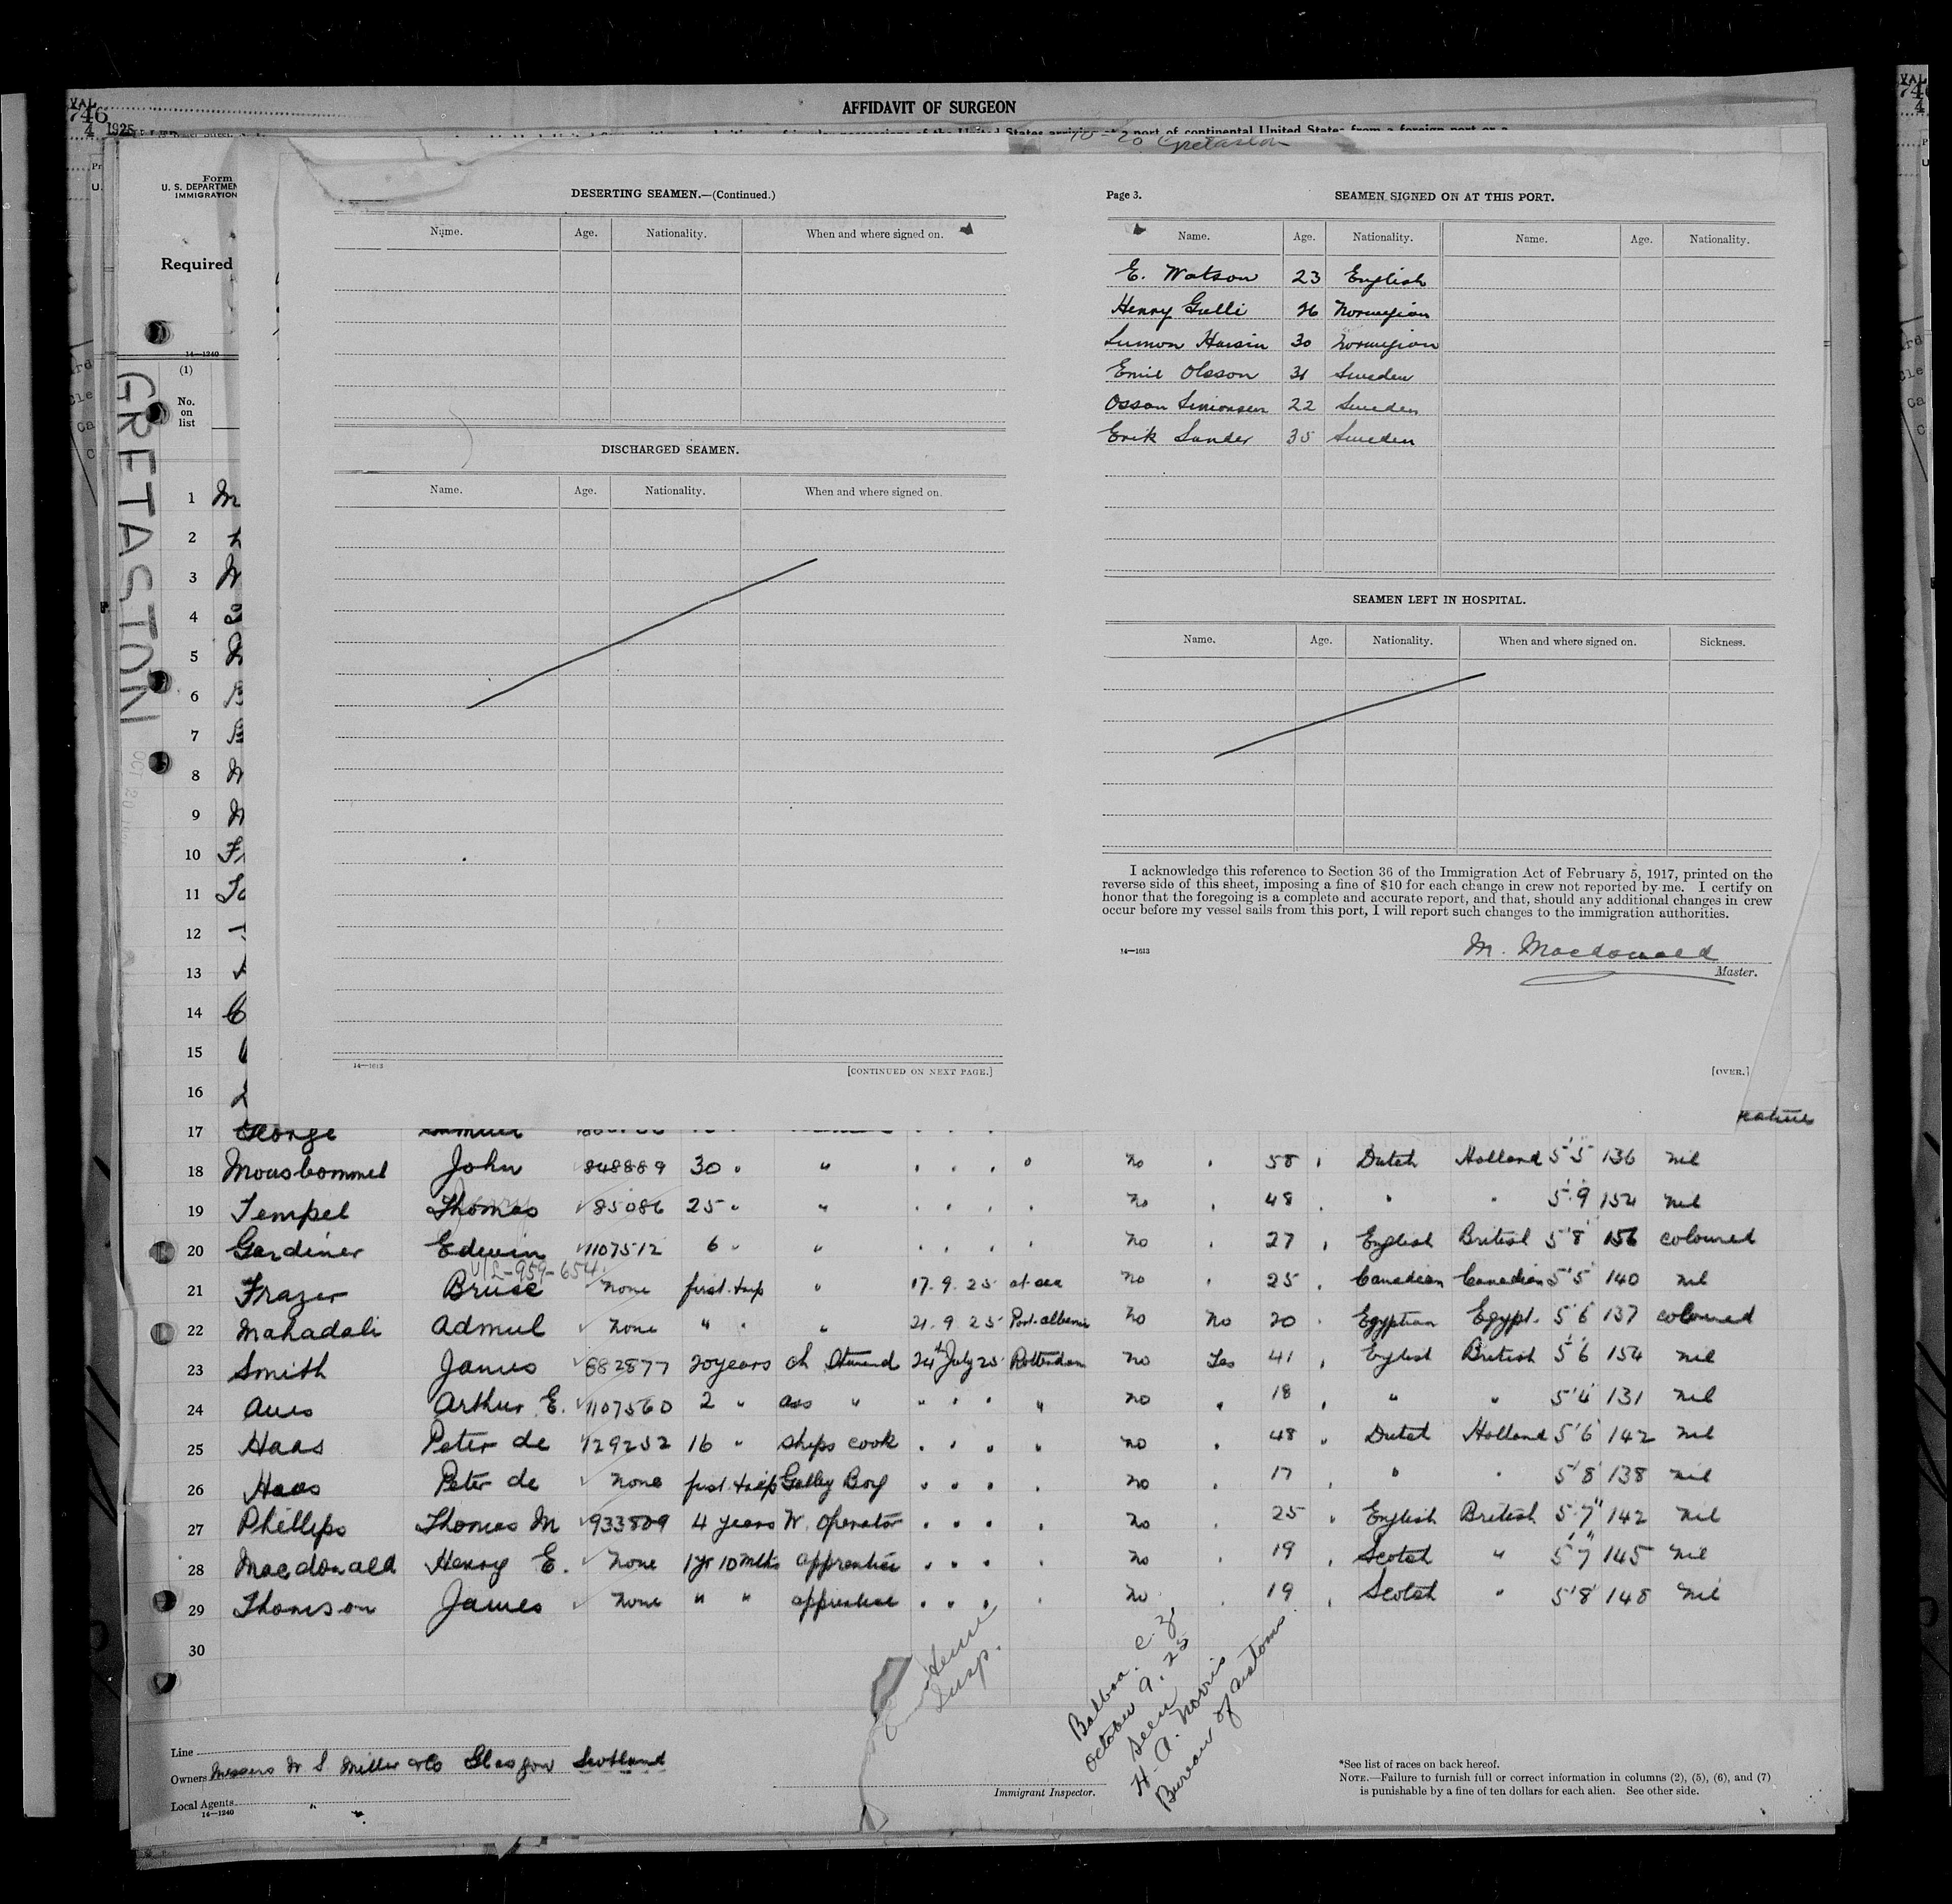 AFFIDAVIT OF SURGEON
1925
10-20 Gretaston
Form
U. S. DEPARTMEN
IMMIGRATION
Required
14—1240
(1)
No.
on
list
GRETASTON
OCT 20
DESERTING SEAMEN.—(Continued.)
Name. Age. Nationality. When and where signed on.
DISCHARGED SEAMEN.
Name. Age. Nationality. When and where signed on.
14—1613
[CONTINUED ON NEXT PAGE.]
Page 3. SEAMEN SIGNED ON AT THIS PORT.
Name. Age. Nationality. Name. Age. Nationality.
E. Watson 23 English
Henry Gulli 26 Norwegian
30 Norwegian
Emil Olsson 31 Sweden
Ossan Simonsen 22 Sweden
Erik Sander 35 Sweden
SEAMEN LEFT IN HOSPITAL.
Name. Age. Nationality. When and where signed on. Sickness.
I acknowledge this reference to Section 36 of the Immigration Act of February 5, 1917, printed on the
reverse side of this sheet, imposing a fine of $10 for each change in crew not reported by me. I certify on
honor that the foregoing is a complete and accurate report, and that, should any additional changes in crew
occur before my vessel sails from this port, I will report such changes to the immigration authorities.
14—1613
M. Macdonald
Master.
[OVER.]
1 M
2
3
4
5
6
7
8
9
10
11
12
13
14
15
16
17 George
18 Mousbommel John 848889 30 " " no 58 Dutch Holland 5'5" 136 nil
19 Tempel Thomas 85086 25 " " no 48 " " 5'9 154 nil
20 Gardiner Edwin 1107512 6 " " no 27 English British 5'8" 156 coloured
V/L-959-654
21 Frazer Bruse none first trip " 17.9.25 at sea no 25 Canadian Canadian 5'5" 140 nil
22 Mahadali Admul none " " " 21.9.25 Port alberni no No 20 Egyptian Egypt. 5'6 137 coloured
23 Smith James 882877 20 years ch Steward 24th July 25 Rotterdam no Yes 41 English British 5'6 154 nil
24 Aues Arthur E. 1107560 2 " ass " " " " " no 18 " " 5'4" 131 nil
25 Haas Peter de 729252 16 " ships cook no 48 Dutch Holland 5'6" 142 nil
26 Haas Peter de none first trip Galley Boy no 17 " " 5'8" 138 nil
27 Phillips Thomas M 933809 4 years W. operator no 25 English British 5'7" 142 nil
28 Macdonald Henry E. none 1yr 10 mths apprentice no 19 Scotch " 5'7" 145 nil
29 Thomson James none " " apprentice no 19 Scotch " 5'8" 148 nil
30
Insp.
Balboa. C.Z.
October 9, 25
Seen
H. A. Norris
Bureau of Customs
Line
Owners Messrs W S Miller & Co Glasgow Scotland
Local Agents " "
14—1240
Immigrant Inspector.
*See list of races on back hereof.
NOTE.—Failure to furnish full or correct information in columns (2), (5), (6), and (7)
is punishable by a fine of ten dollars for each alien. See other side.